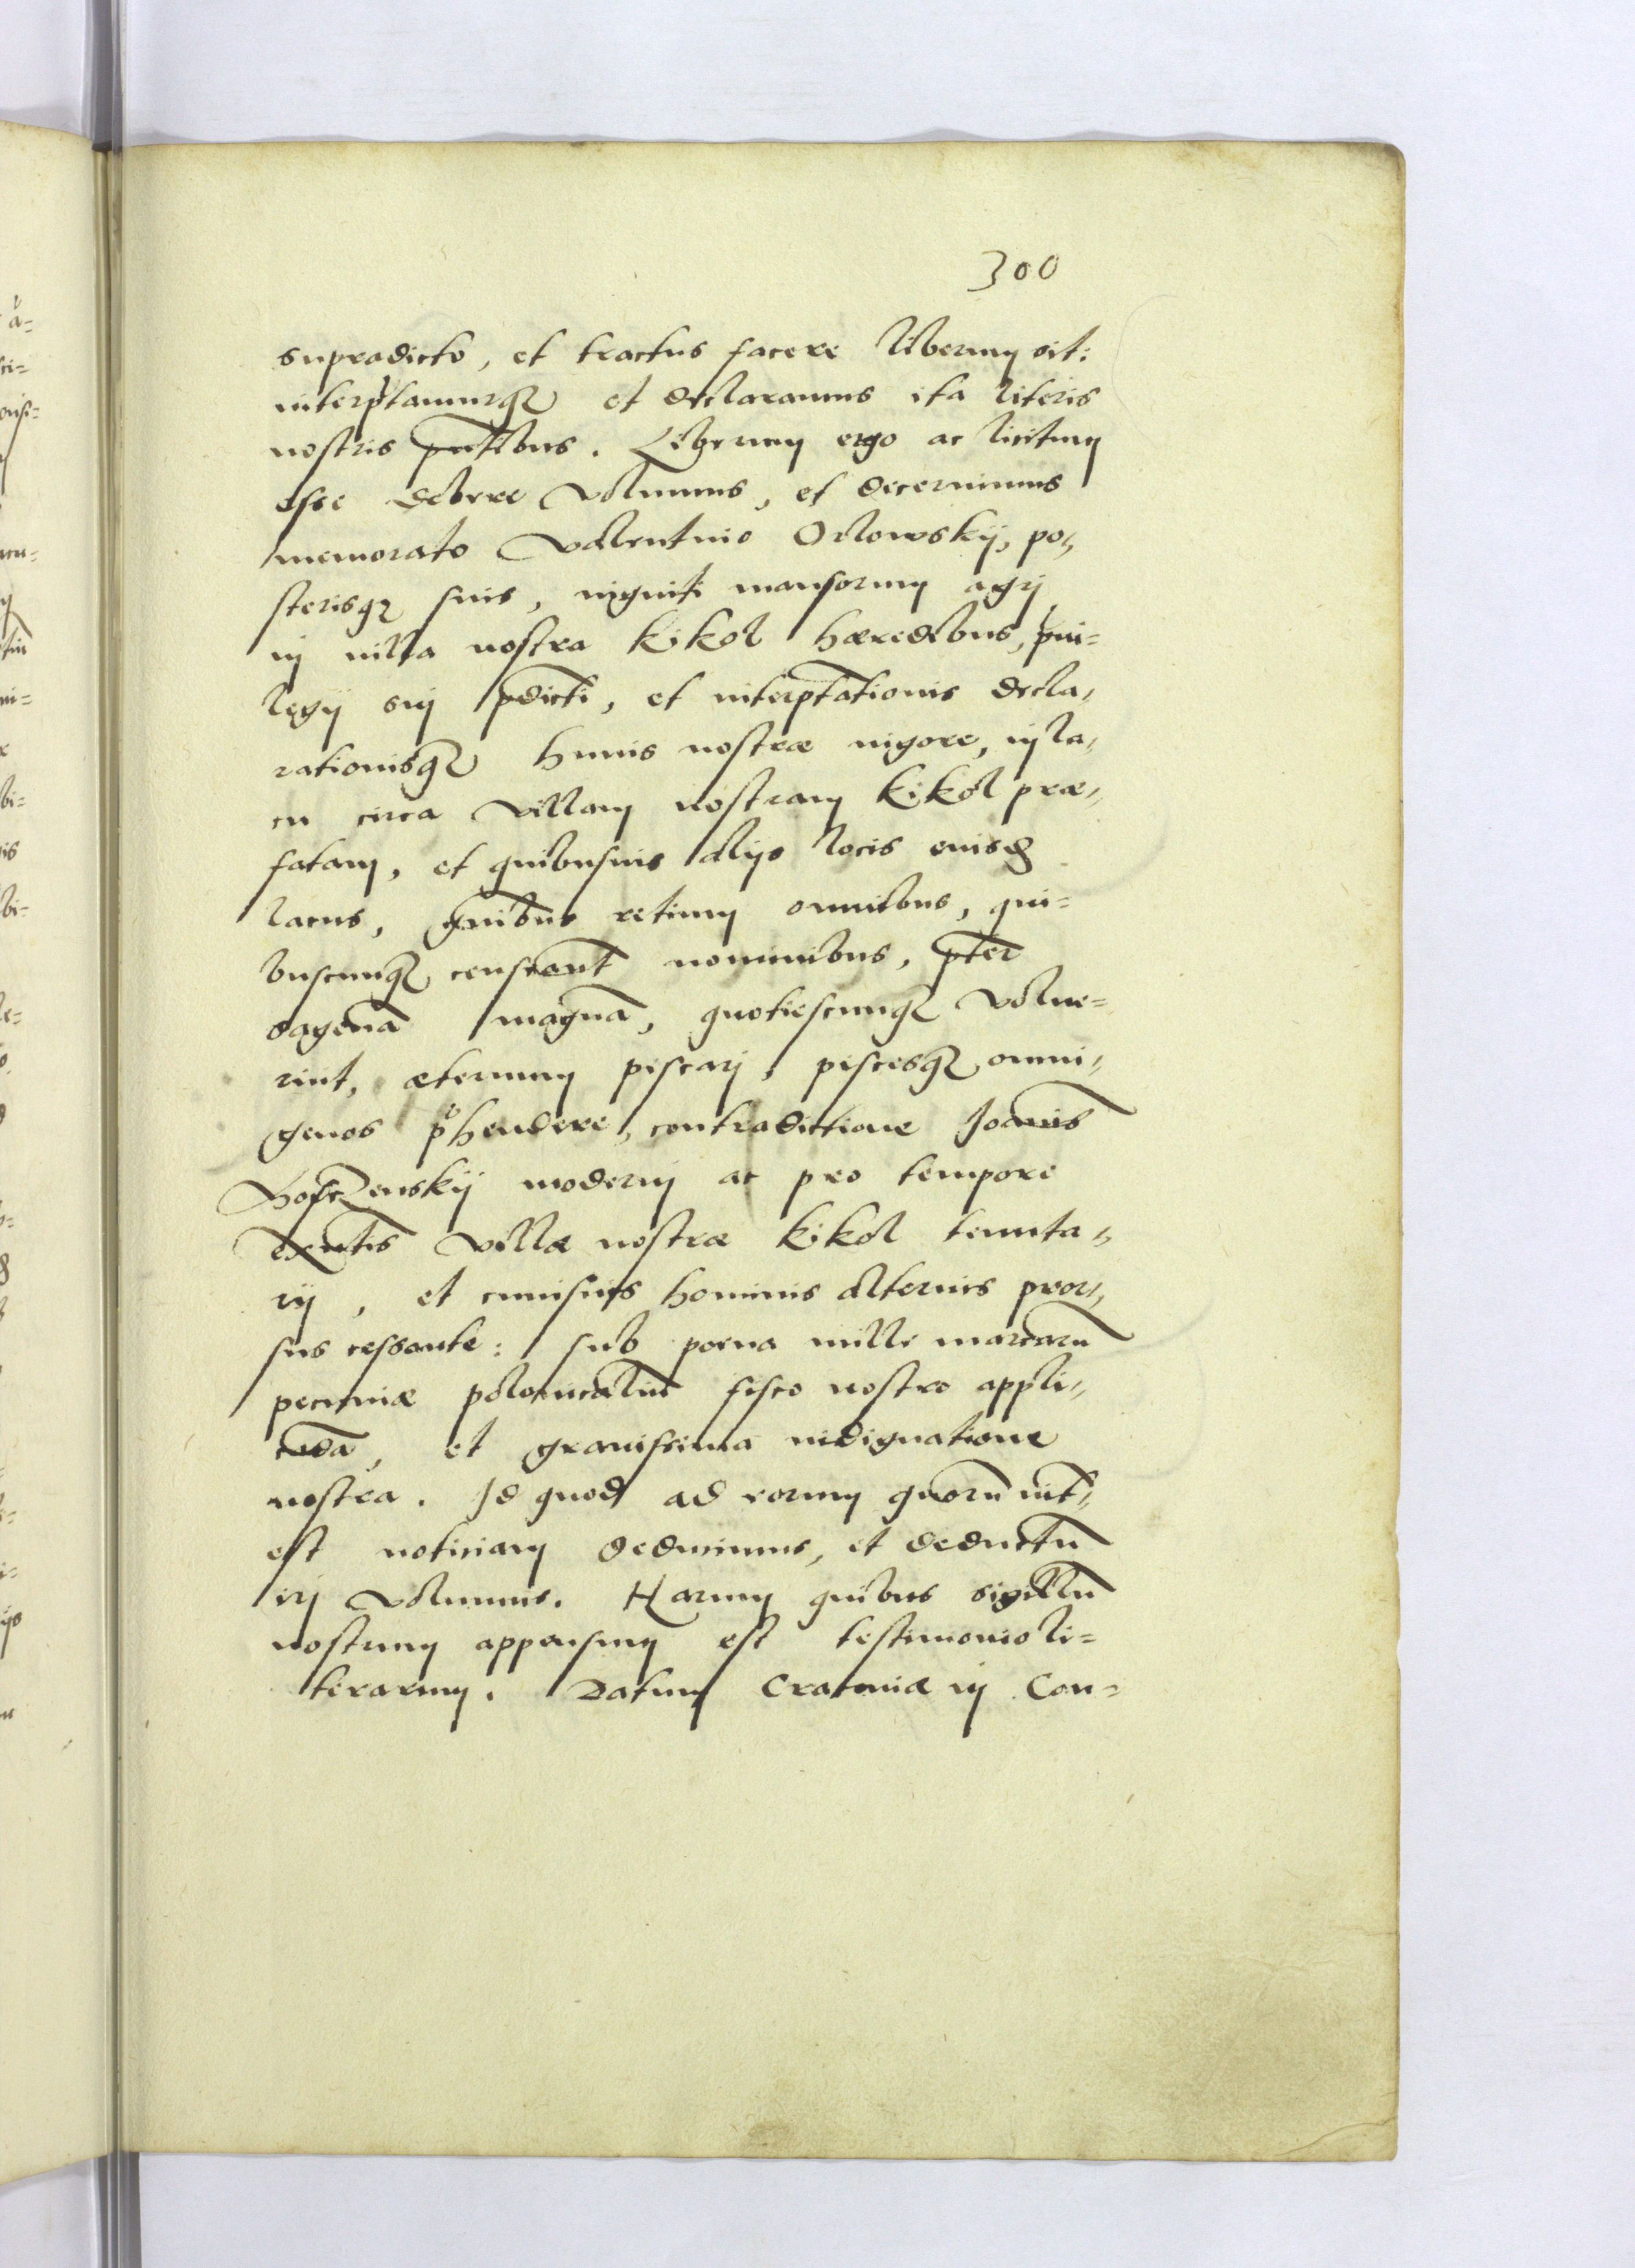 300
supradicto, et tractus facere liberum sit:
interp̃tamurq₃ et declaramus ita literis
nostris p̃ntibus. Liberum ergo ac licitum
esse debere volumus, et decernimus
memorato Valentino Orlowskij, po„
sterisq₃ suis, viginti mansorum agri
in villa nostra Kikol hæredibus, priui=
legij sui p̃dicti, et interp̃tationis decla„
rationisq₃ huius nostræ vigore, in la„
cu circa villam nostram Kikol præ„
fatam, et quibusuis alijs locis eiusd
lacus, gñibus retium omnibus, qui=
buscunq₃ censeant̃ nominibus, p̃ter
sagenã magnã, quotiescunq₃ volue=
rint, æternum piscari, piscesq₃ omni„
genos p̃hendere, contradictione Joãnis
KosczZenskij moderni ac pro tempore
exñtis villæ nostræ Kikol tenuta„
rij, et cuiusuis hominis alterius pror„
sus cessante: sub poena mille marcarũ
pecuniæ polonicaliũ fisco nostro appli„
cãdã, et grauissima indignatione
nostra. Id quod ad eorum quorũ int̃„
est noticiam deducimus, et deductũ
iri volumus. Harum quibus sigillũ
nostrum appensum est testimonio li=
terarum. Datum Cracouiæ in Con=